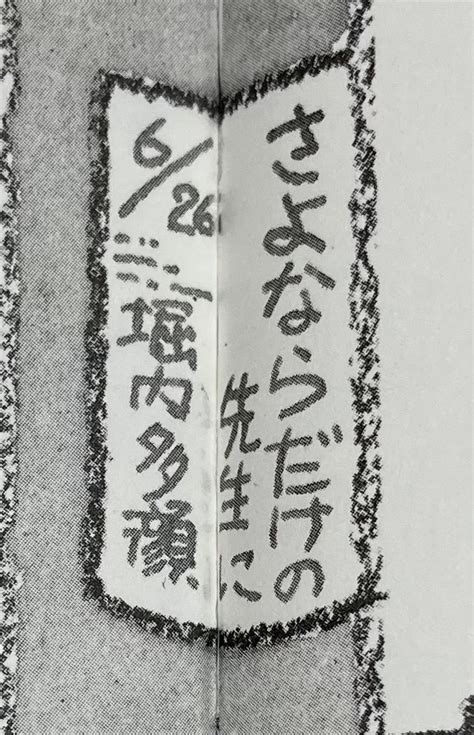 さよならだけの
先生に
6/26
堀内多顔